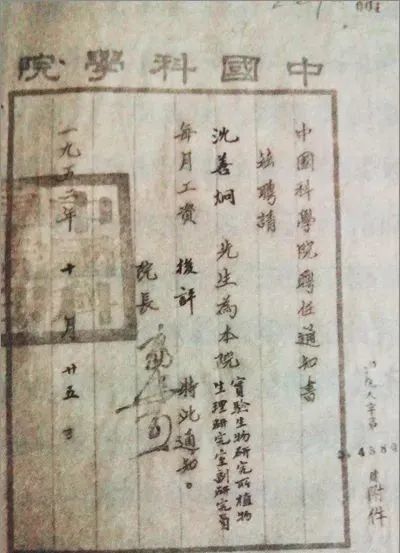 中國科學院
中國科學院聘任通知書
茲聘請
沈善炯 先生為本院實驗生物研究所植物
生理研究室副研究員
每月工資 後評 特此通知。
院長
一九五二年 十 月 廿五日
附件